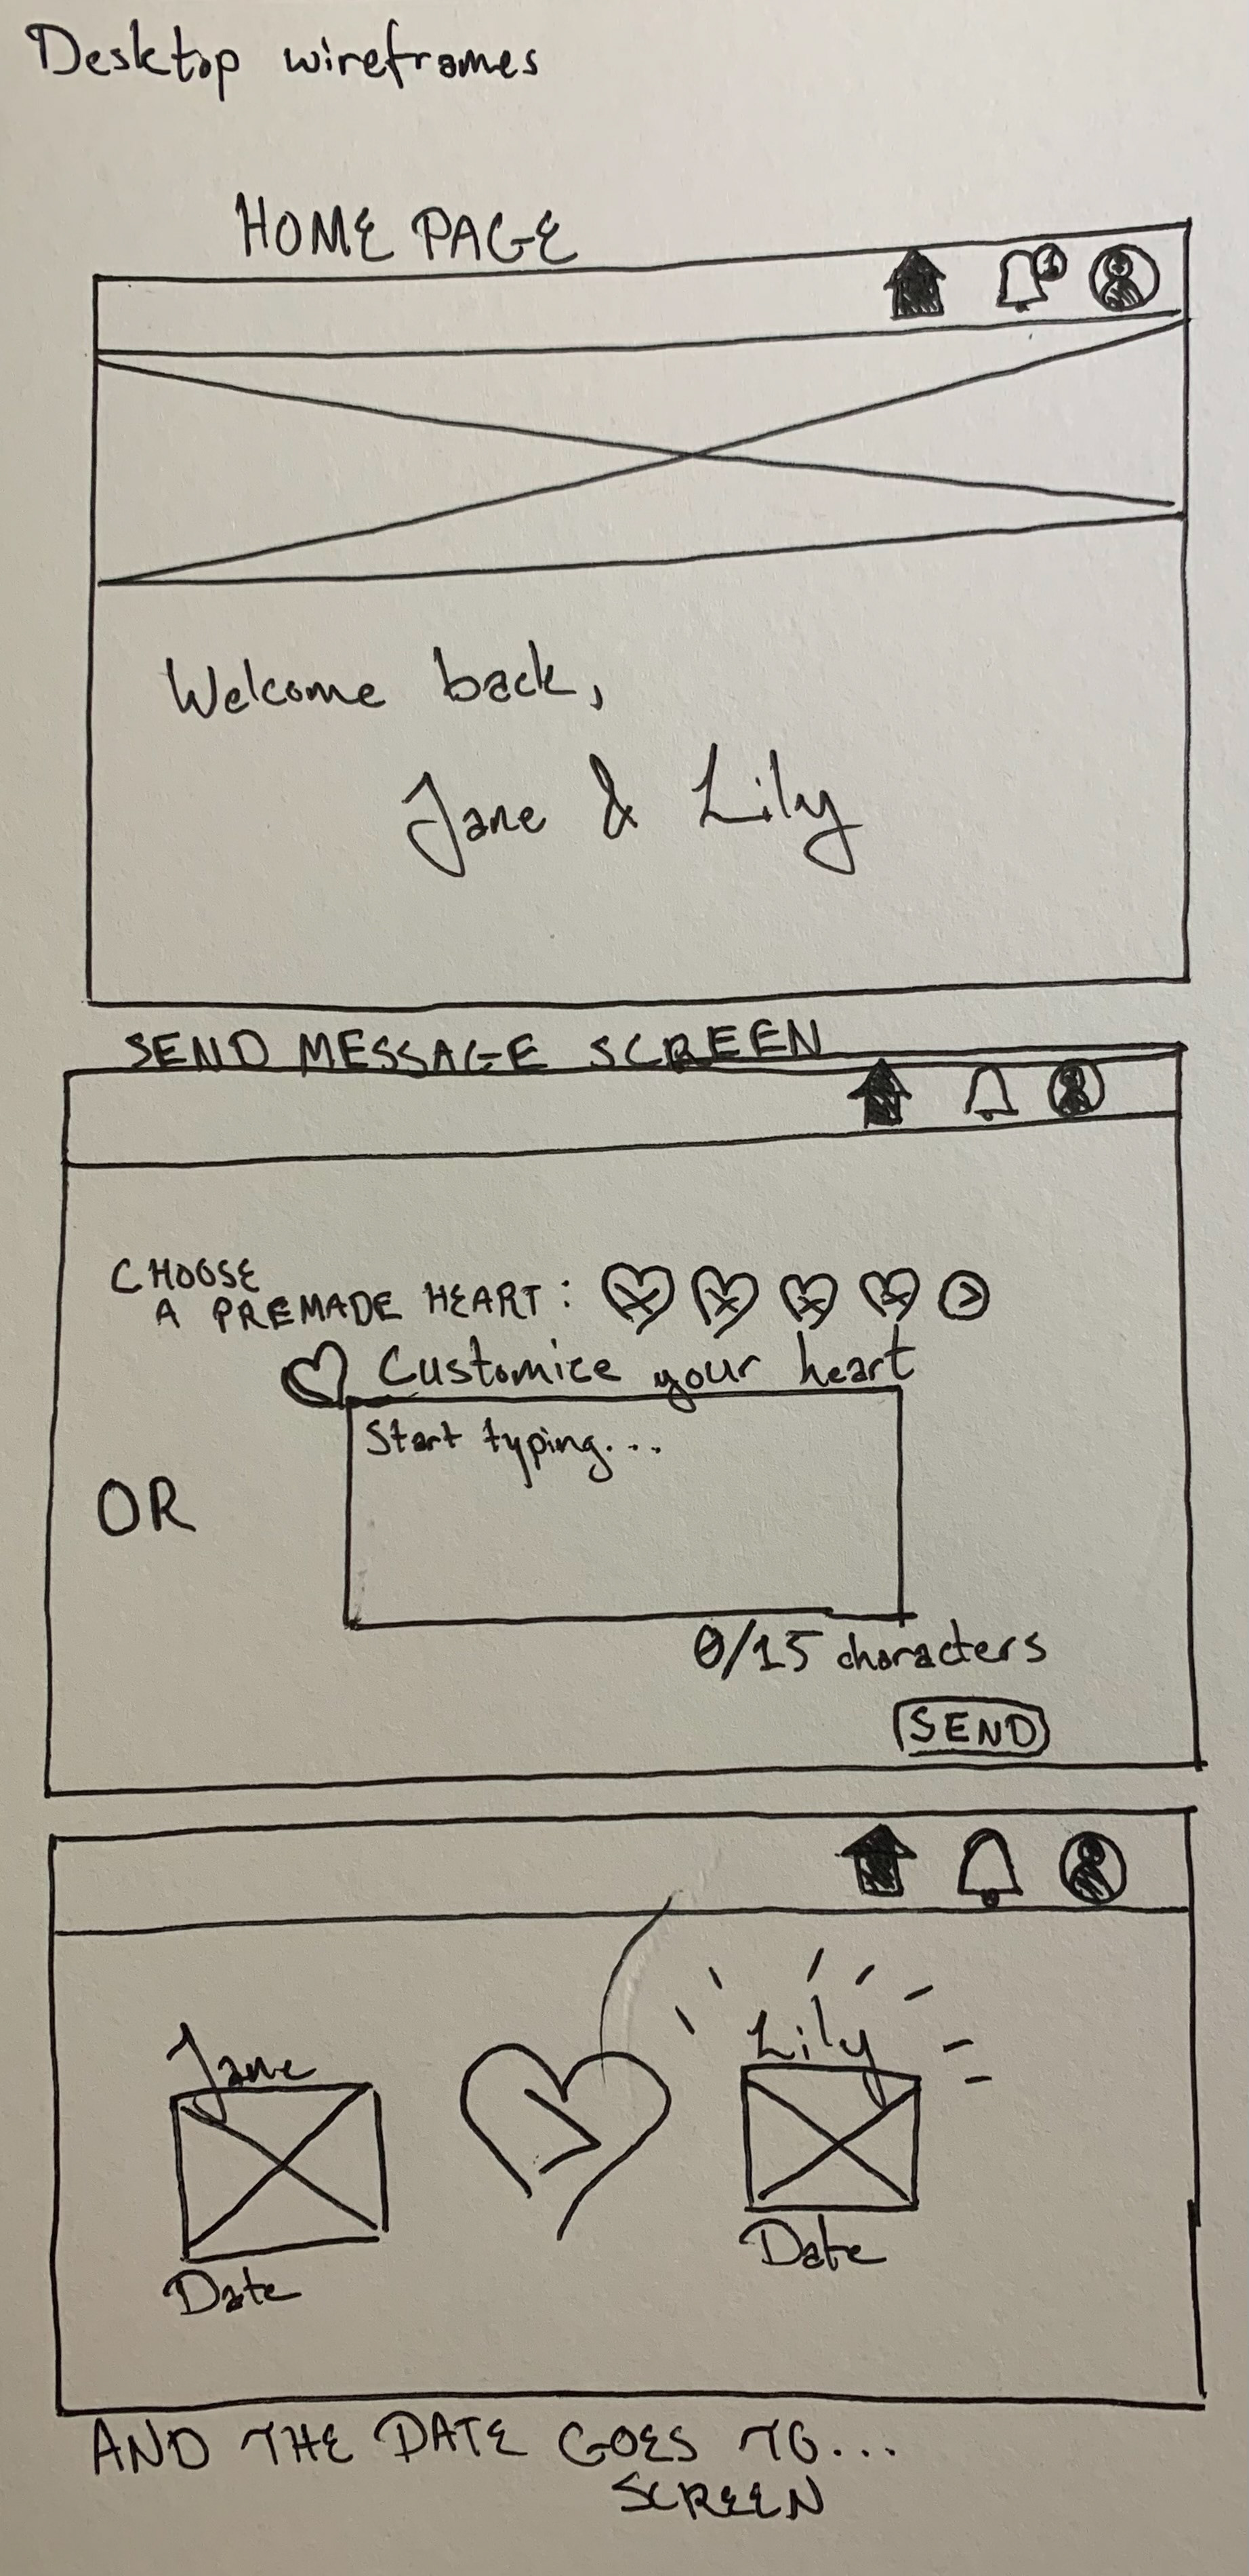 Desktop wireframes
HOME PAGE
1
Welcome back,
Jane & Lily
SEND MESSAGE SCREEN
CHOOSE
A PREMADE HEART:
Customize your heart
Start typing...
OR
0/15 characters
SEND
Jane
Lily
Date
Date
AND THE DATE GOES TO...
SCREEN